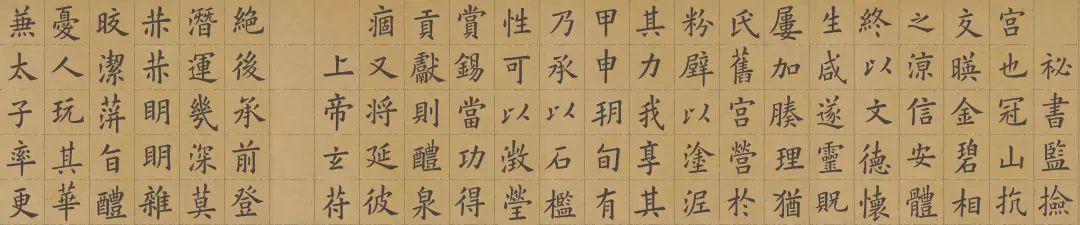 祕書監撿
宮也冠山抗
交暎金碧相
之涼信安體
終以文德懷
生咸遂靈貺
屢加腠理猶
氏舊宮營於
粉壁以塗泥
其力我享其
甲申朔旬有
乃承以石檻
性可以澂瑩
賞錫當功得
貢獻則醴泉
痼又将延彼
上帝玄苻
絶後承前登
潛運幾深莫
赫赫明明雜
晈潔蓱旨醴
憂人玩其華
兼太子率更